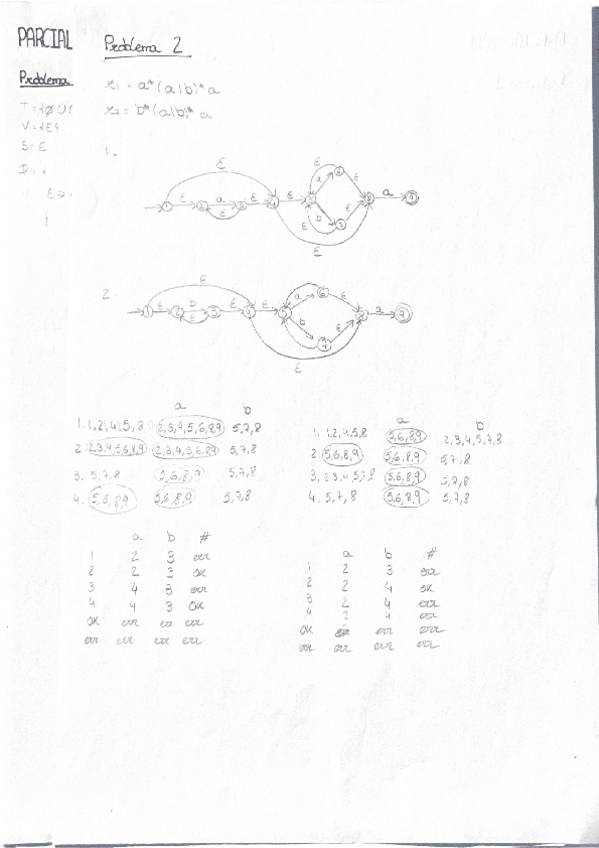 PARCIAL
Problema 2
Problema
r1 = a*(a|b)*a
r2 = b*(a|b)*a
V = {E}
S = E
1.
ε
ε a ε ε ε a ε a
1 2 3 4 5 6 7 8 9
ε b ε
ε
2.
ε
ε b ε ε a ε a
1 2 3 4 5 6 7 8 9
ε b ε
ε
a b
1. 1,2,4,5,8 2,3,4,5,6,8,9 5,7,8
2. 2,3,4,5,6,8,9 2,3,4,5,6,8,9 5,7,8
3. 5,7,8 5,6,8,9 5,7,8
4. 5,6,8,9 5,6,8,9 5,7,8
a b
1. 1,2,4,5,8 5,6,8,9 2,3,4,5,7,8
2. 5,6,8,9 5,6,8,9 5,7,8
3. 2,3,4,5,7,8 5,6,8,9 5,7,8
4. 5,7,8 5,6,8,9 5,7,8
a b #
1 2 3 err
2 2 3 OK
3 4 3 err
4 4 3 OK
OK err err err
err err err err
a b #
1 2 3 err
2 2 4 OK
3 2 4 err
4 2 4 err
OK err err err
err err err err